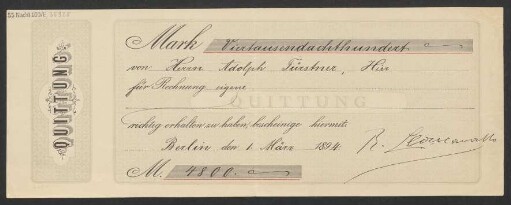 QUITTUNG
Mark Viertausendachthundert
von Herrn Adolph Fürstner, Hier
für Rechnung eigene
QUITTUNG
richtig erhalten zu haben, bescheinige hiermit.
Berlin den 1. März 1894.
M. 4800.